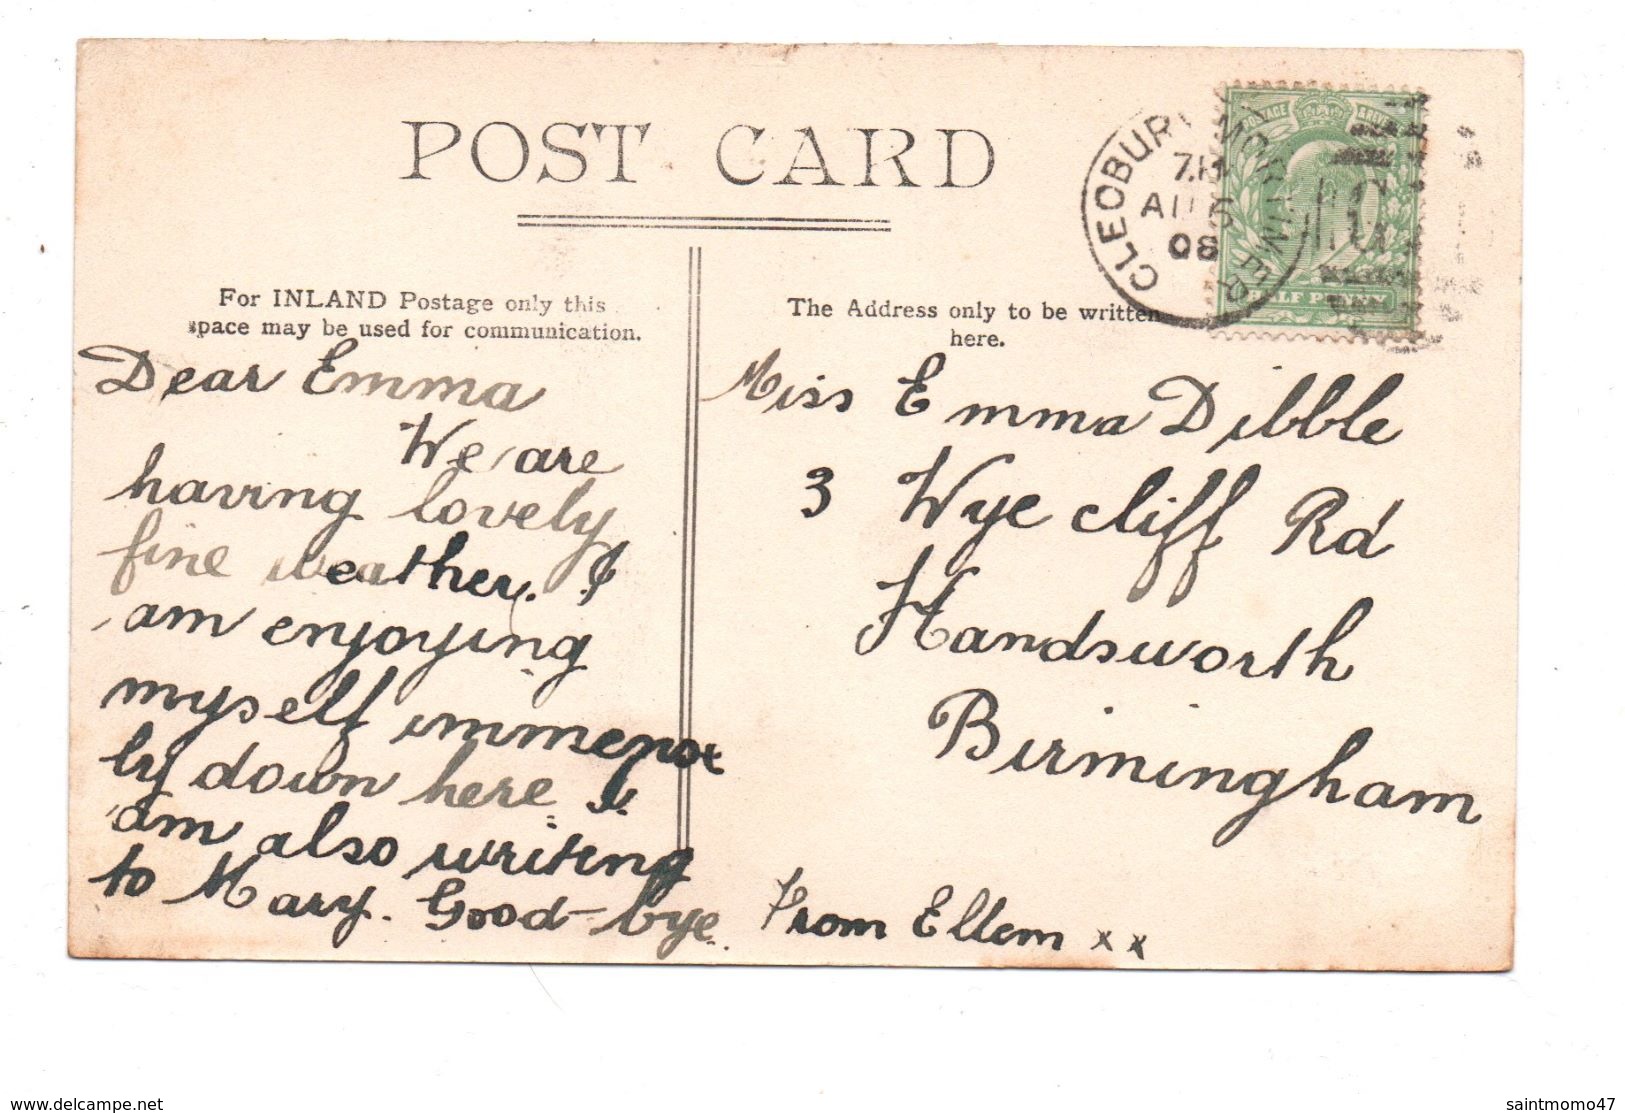 POST CARD
For INLAND Postage only this
space may be used for communication.
The Address only to be written
here.
CLEOBURY MORTIMER
AU 5
08
POSTAGE
HALF PENNY
Dear Emma
We are
having lovely
fine weather. I
am enjoying
myself immense
ly down here I
am also writing
to Mary. Good-bye.
Miss Emma Dibble
3 Wye cliff Rd
Handsworth
Birmingham
From Ellem xx
www.delcampe.net
saintmomo47